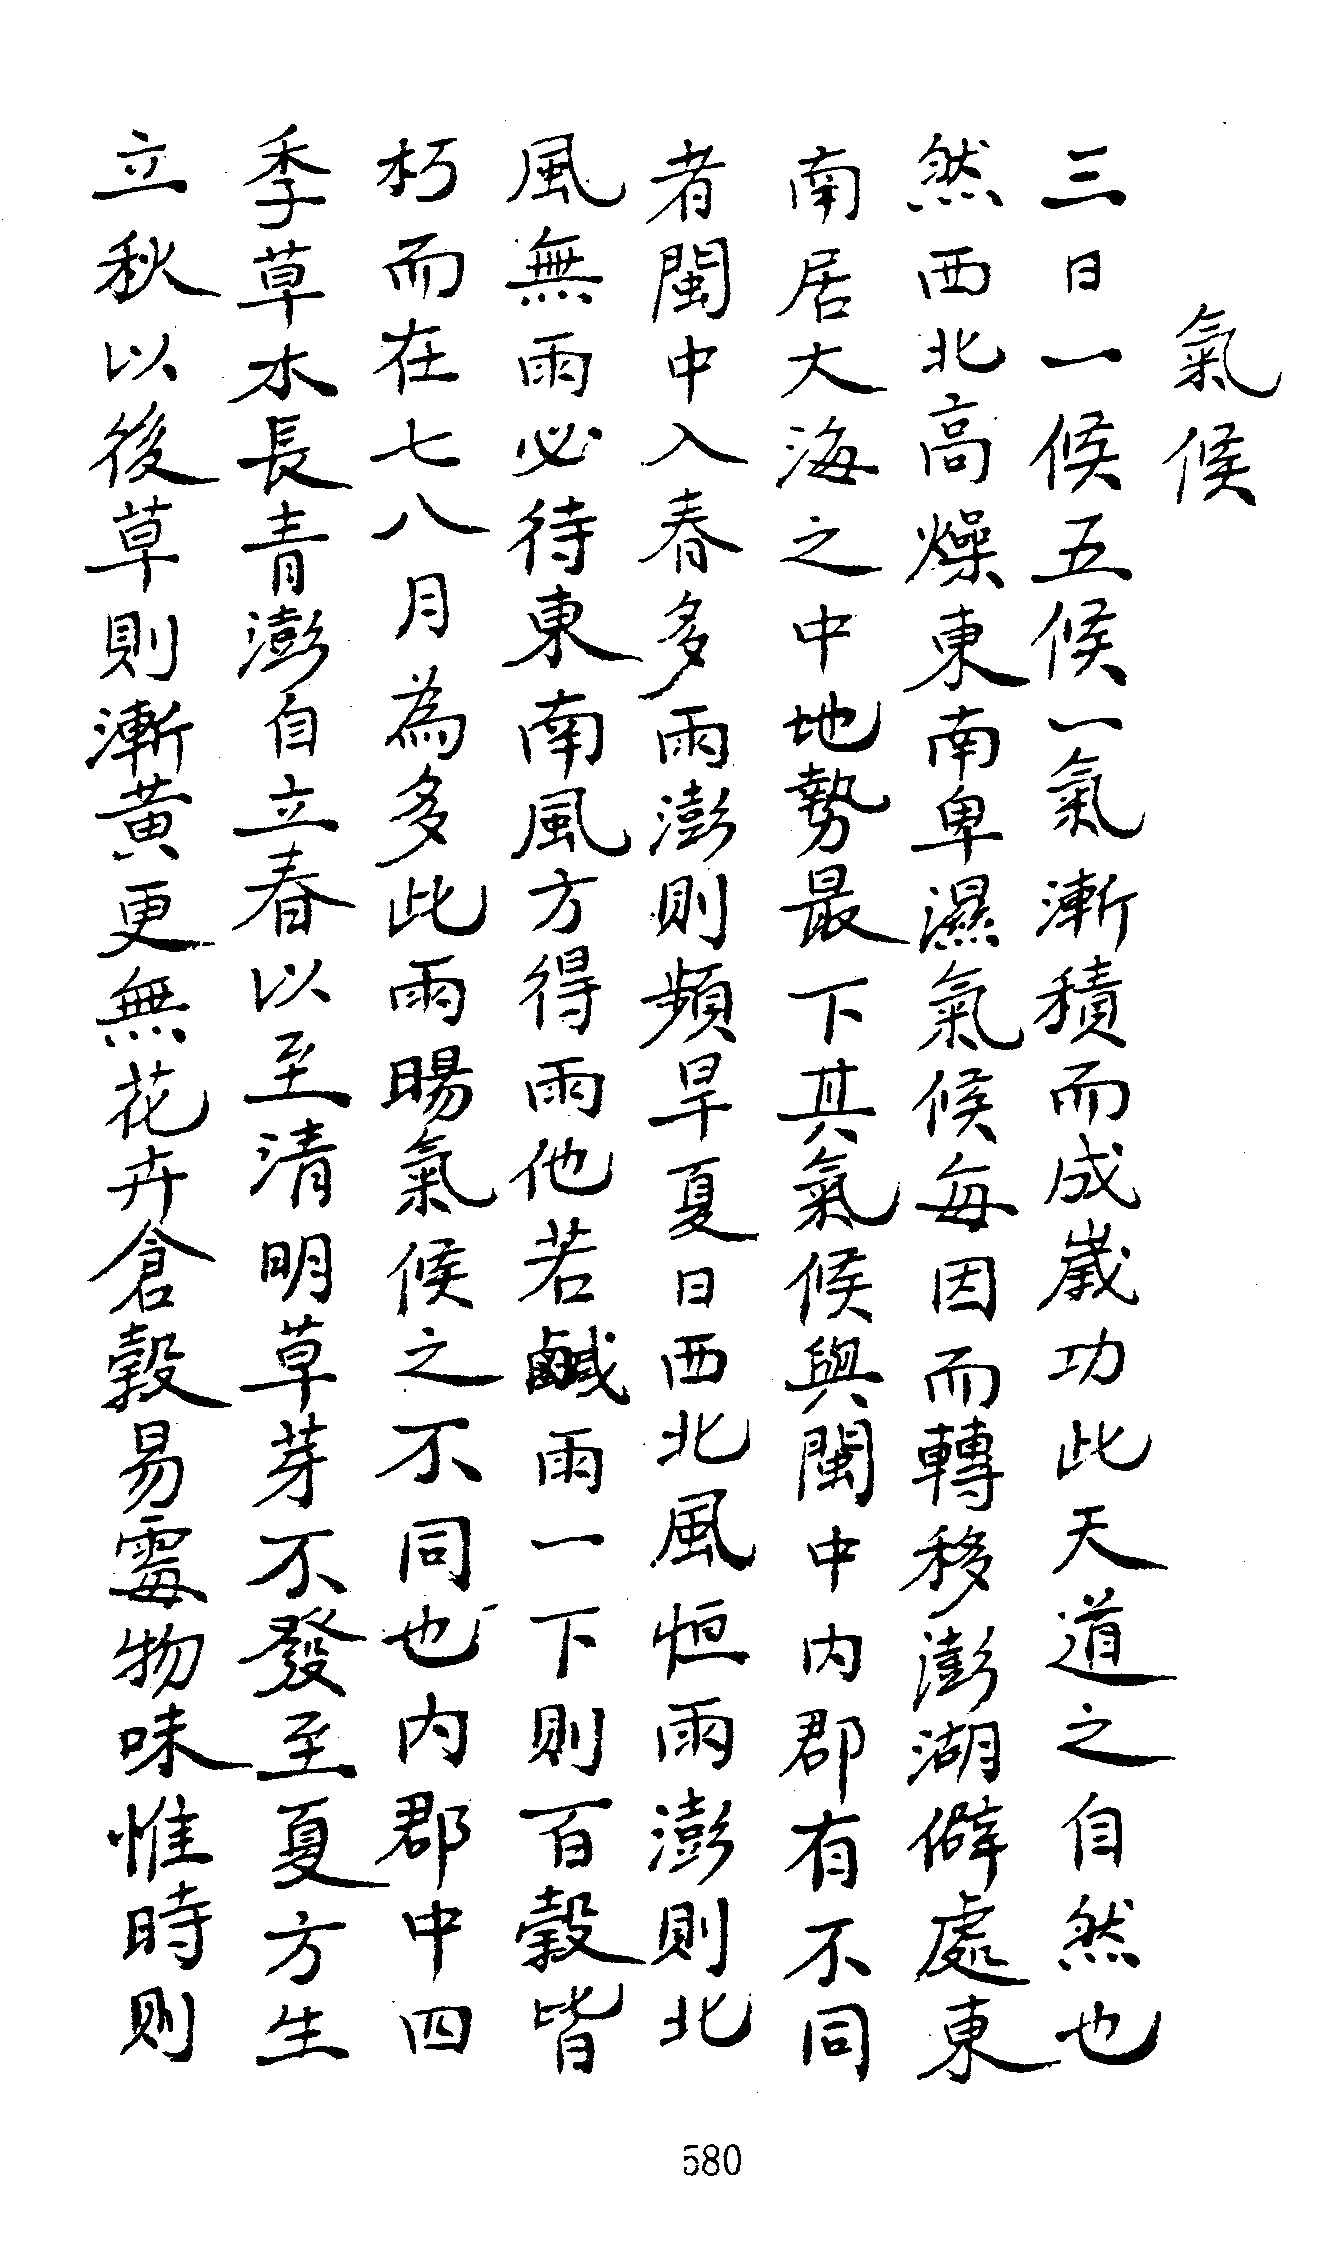 氣候
三日一候五候一氣漸積而成嵗功此天道之自然也
然西北高燥東南卑濕氣候每因而轉移澎湖僻處東
南居大海之中地勢最下其氣候與閩中內郡有不同
者閩中入春多雨澎則頻旱夏日西北風恒雨澎則北
風無雨必待東南風方得雨他若鹹雨一下則百穀皆
朽而在七八月為多此雨暘氣候之不同也內郡中四
季草木長青澎自立春以至清明草芽不發至夏方生
立秋以後草則漸黃更無花卉倉穀易霉物味惟時則
580